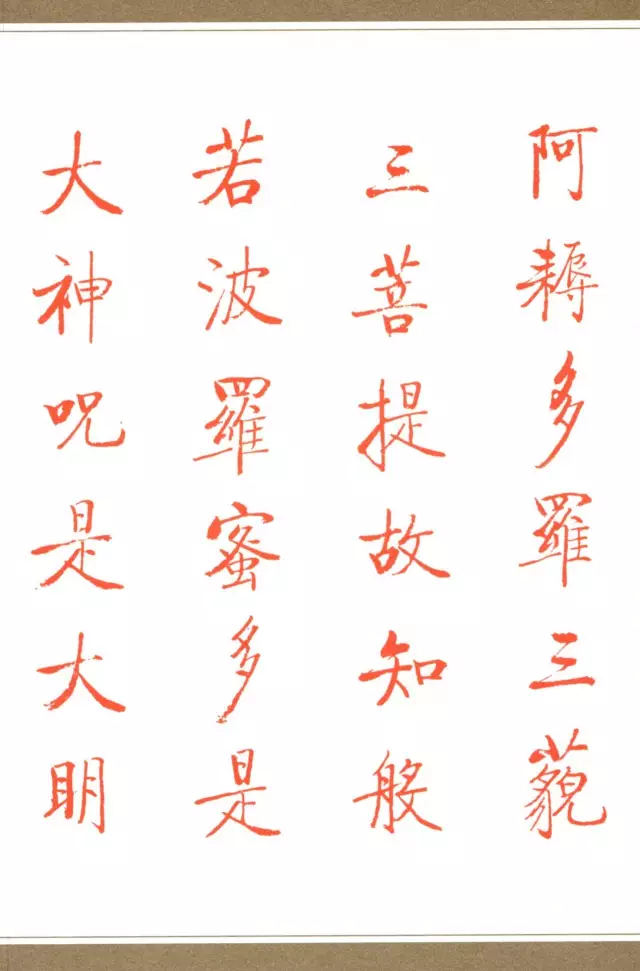 阿耨多羅三藐
三菩提故知般
若波羅蜜多是
大神咒是大明